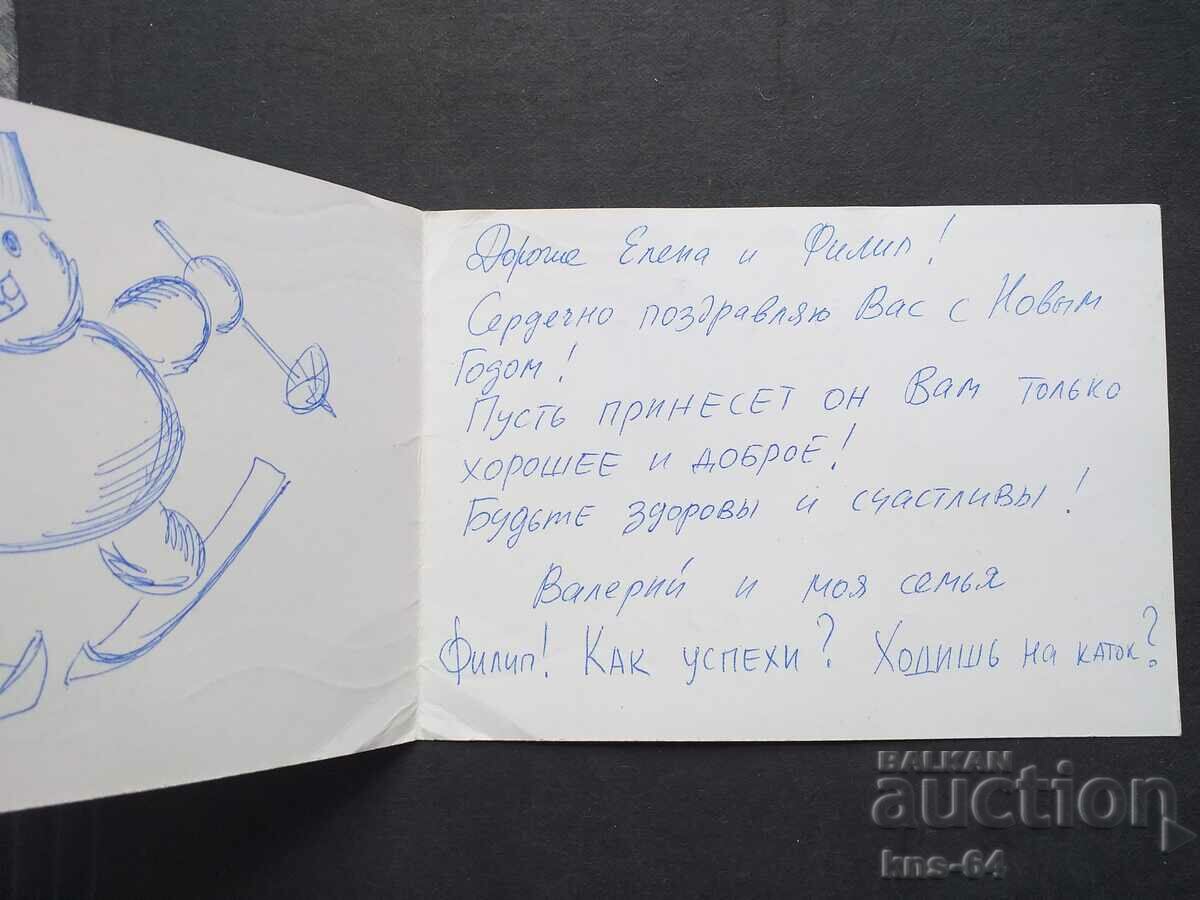 Дорогие Елена и Филип!
Сердечно поздравляю Вас с Новым
Годом!
Пусть принесет он Вам только
хорошее и доброе!
Будьте здоровы и счастливы!
Валерий и моя семья
Филип! Как успехи? Ходишь на каток?
BALKAN
auction
kns-64